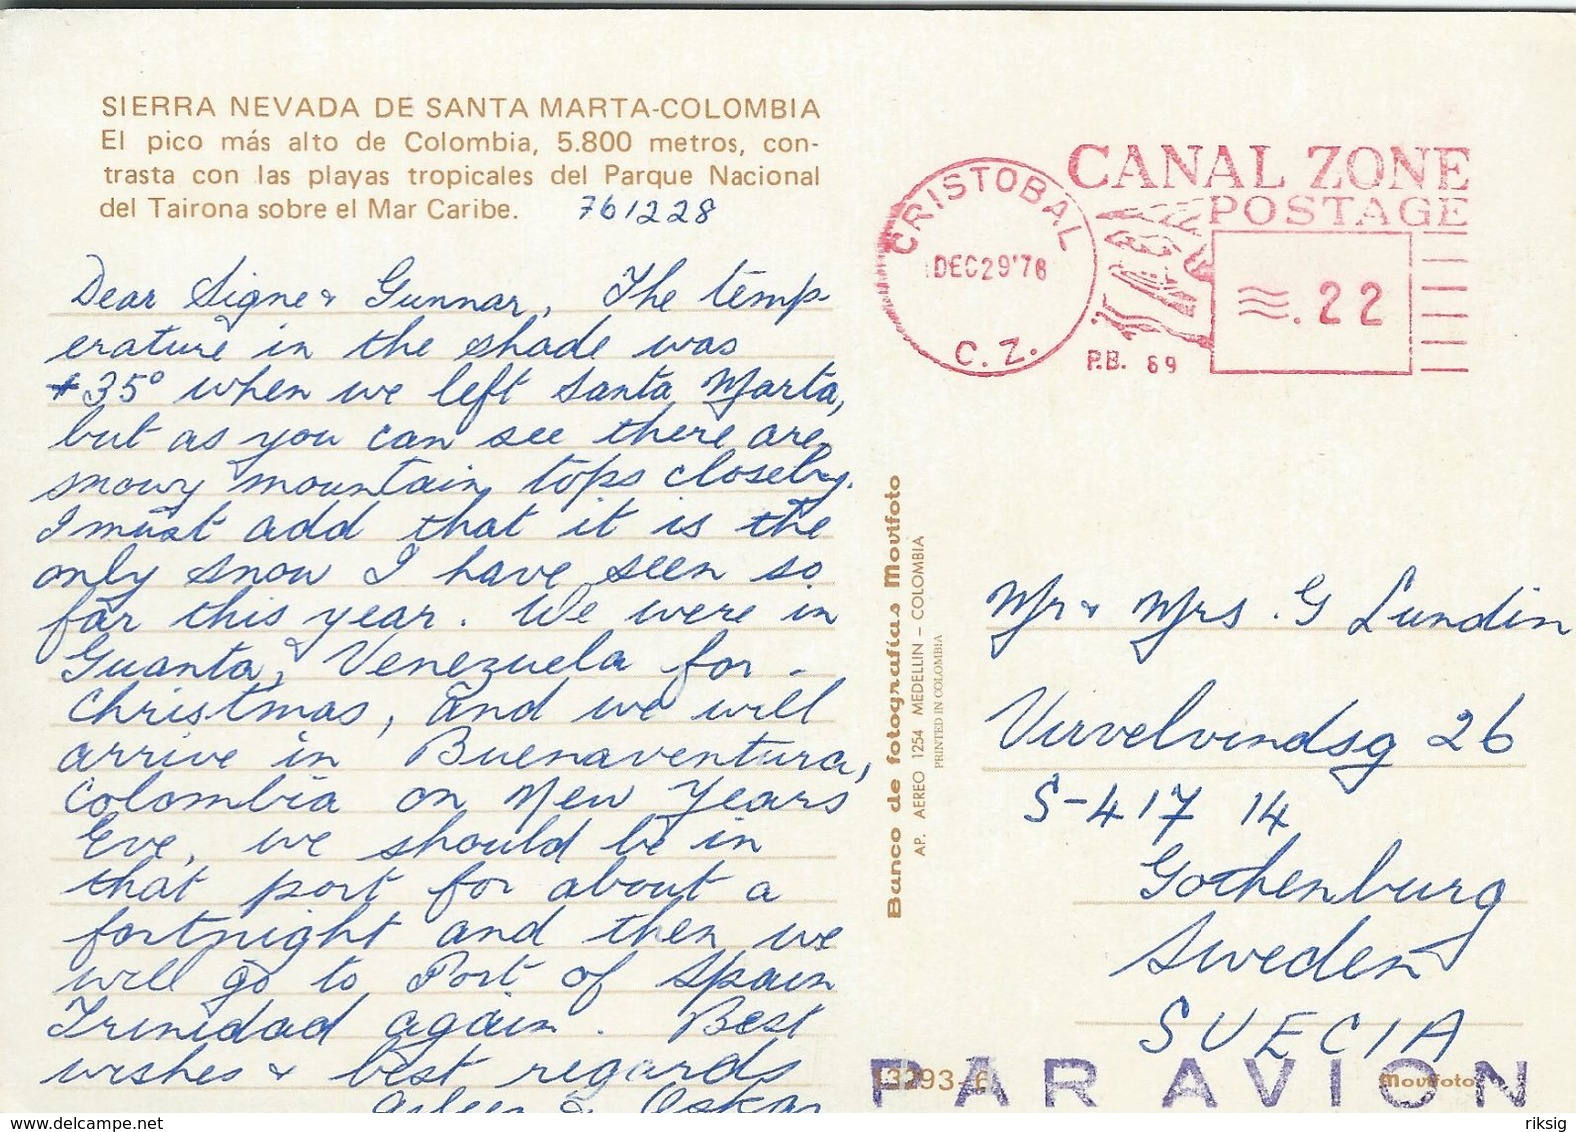 SIERRA NEVADA DE SANTA MARTA-COLOMBIA
El pico más alto de Colombia, 5.800 metros, con-
trasta con las playas tropicales del Parque Nacional
del Tairona sobre el Mar Caribe. 761228
Dear Signe & Gunnar, The temp-
erature in the shade was
+35° when we left Santa Marta,
but as you can see there are
snowy mountain tops closeby.
I must add that it is the
only snow I have seen so
far this year. We were in
Guanta, Venezuela for
Christmas, and we will
arrive in Buenaventura,
Colombia on New Years
Eve, we should be in
that port for about a
fortnight and then we
will go to Port of Spain
Trinidad again. Best
wishes & best regards
& Oskar
Banco de fotografías Movifoto
AP. AEREO 1254 MEDELLIN – COLOMBIA
PRINTED IN COLOMBIA
CRISTOBAL
DEC29'76
C. Z.
CANAL ZONE
POSTAGE
.22
P.B. 69
Mr & Mrs. G Lundin
Virvelvindsg 26
S-417 14
Gothenburg
Sweden
SUECIA
PAR AVION
13293-6
Movifoto
riksig